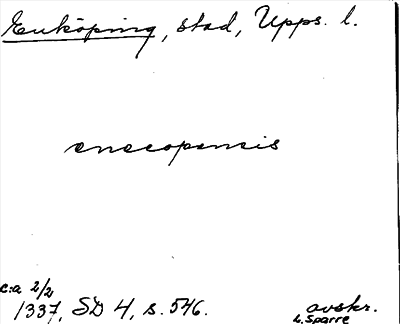 Enköping, stad, Upps. l.
enecopensis
c:a 2/2
1337, SD 4, s. 546.
avskr.
L. Sparre